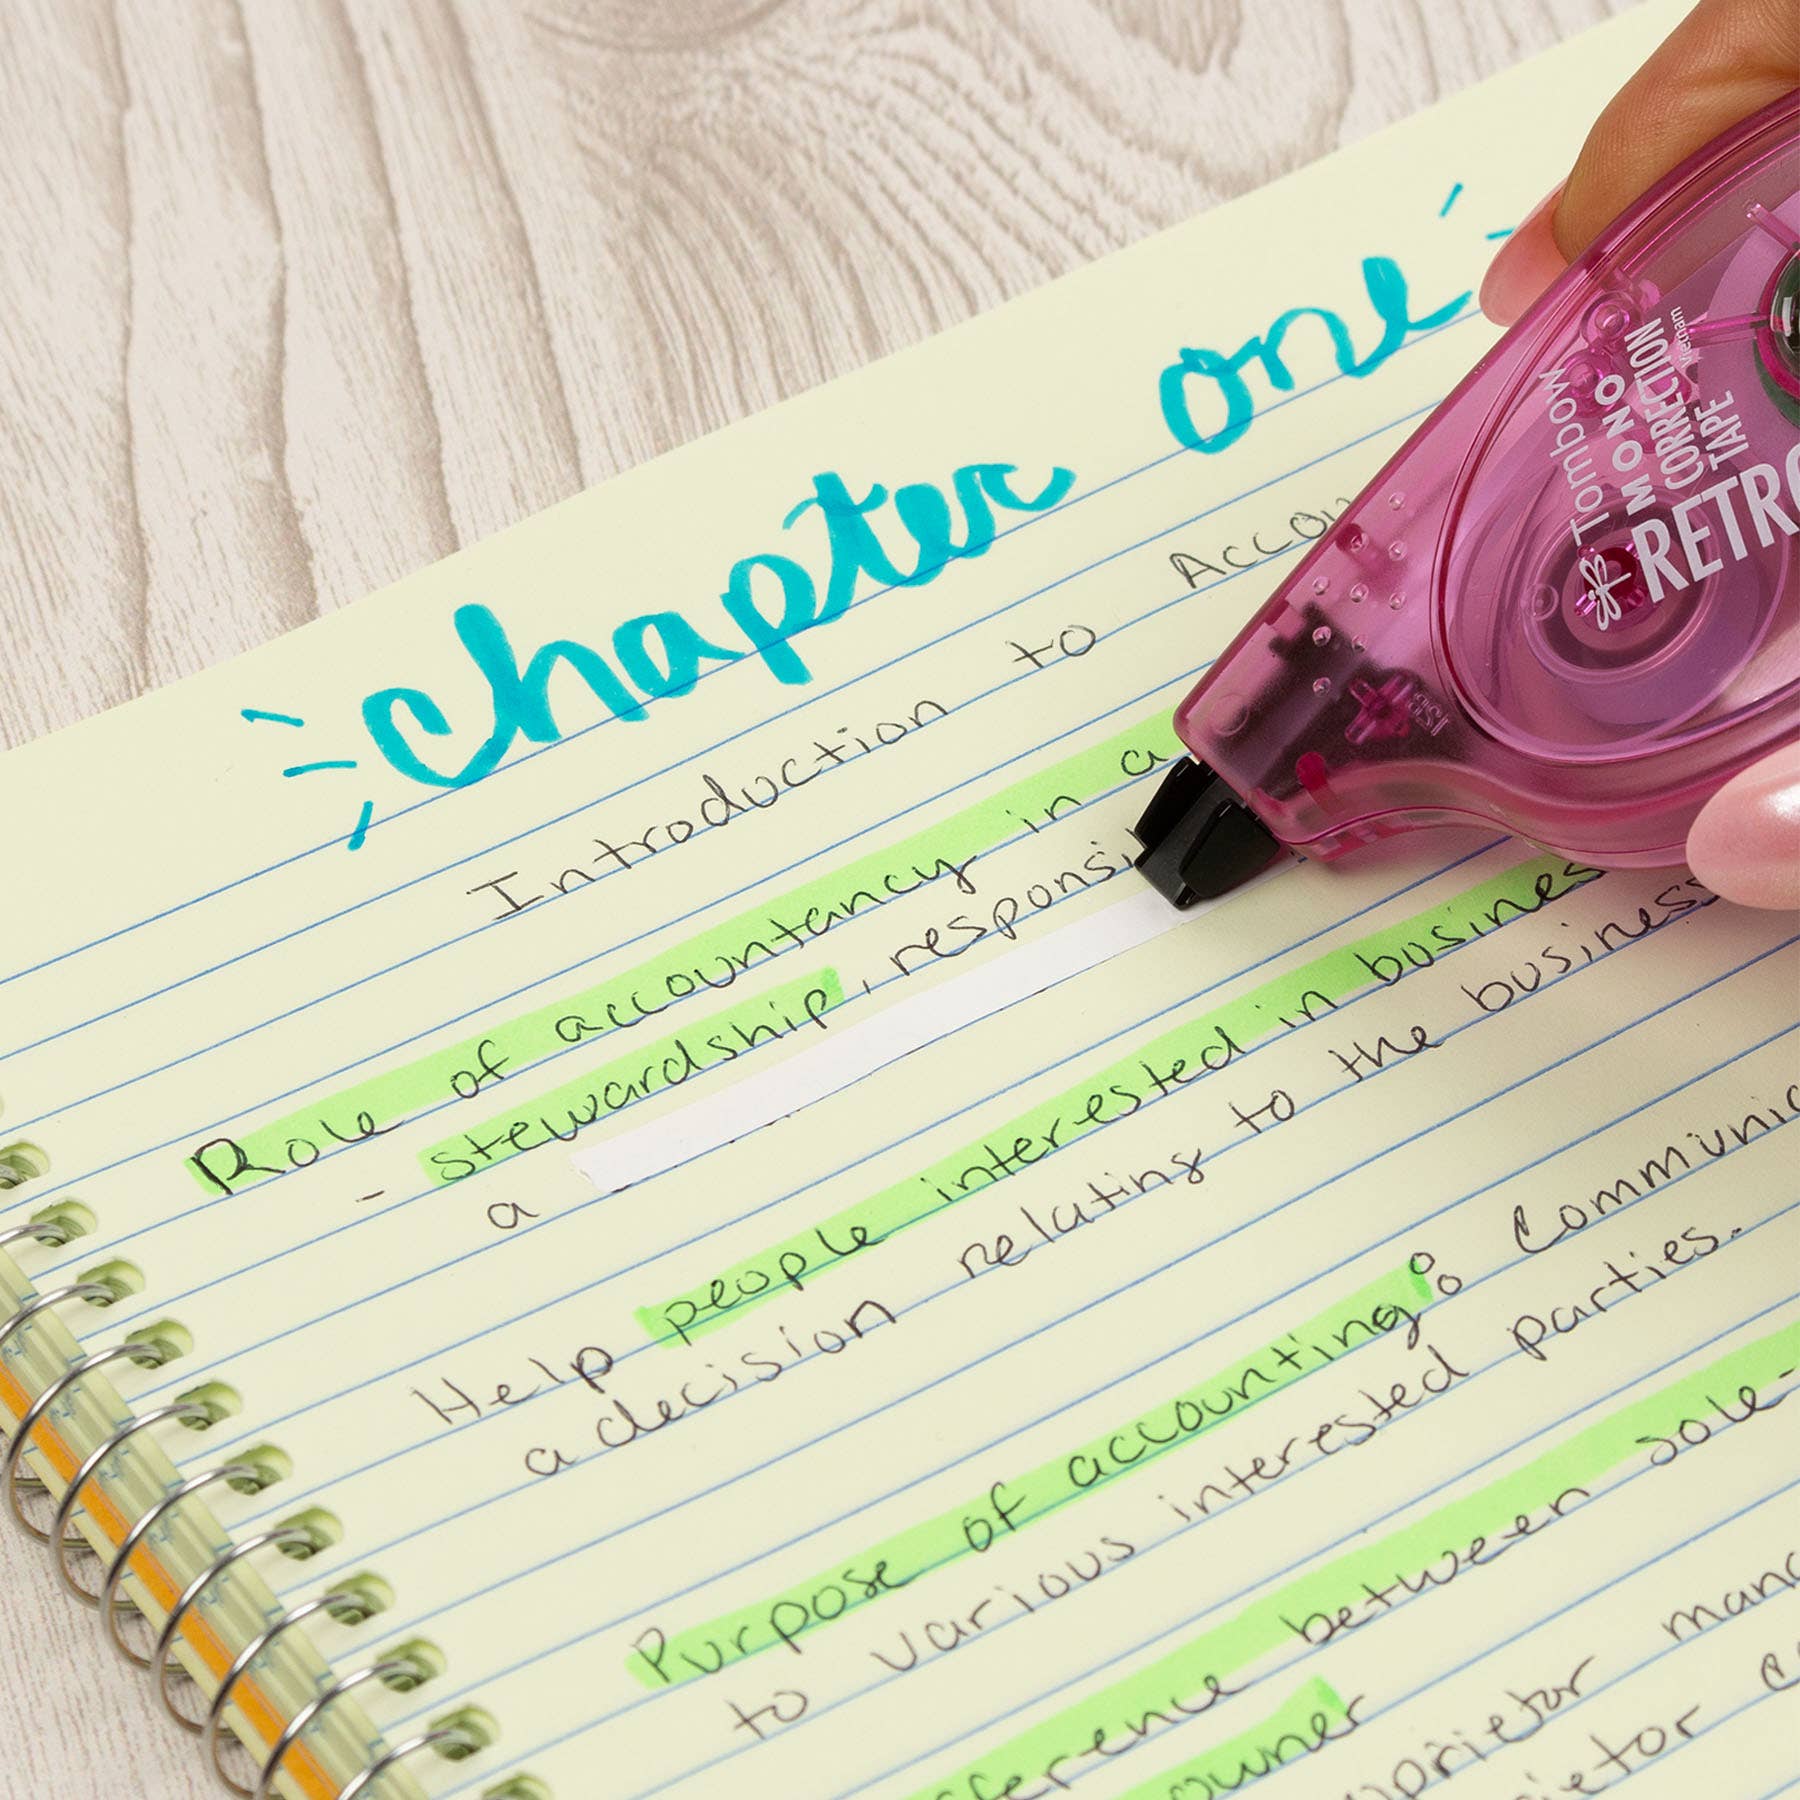 chapter one
Introduction to Accou
Role of accountancy in a
- stewardship, responsi
a
Help people interested in business
a decision relating to the business
Purpose of accounting: Communic
to various interested parties.
between sole-
owner
Tombow
MONO
CORRECTION
TAPE
RETRO
Vietnam